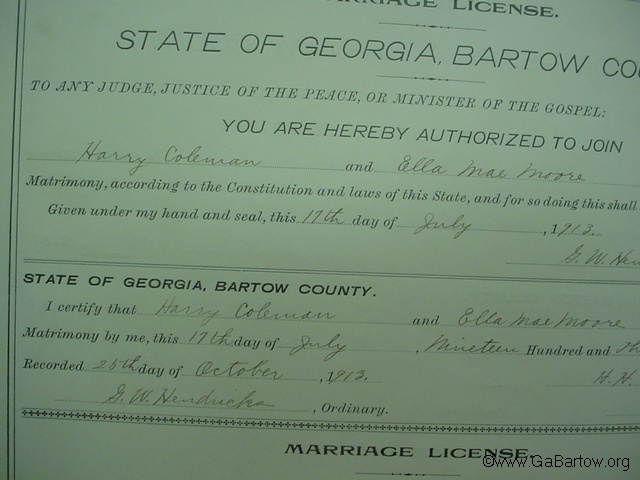 MARRIAGE LICENSE.
STATE OF GEORGIA, BARTOW
TO ANY JUDGE, JUSTICE OF THE PEACE, OR MINISTER OF THE GOSPEL:
YOU ARE HEREBY AUTHORIZED TO JOIN
Harry Coleman and Ella Mae Moore
Matrimony, according to the Constitution and laws of this State, and for so doing this shall
Given under my hand and seal, this 17th day of July, 1913.
G. W. Hen
STATE OF GEORGIA, BARTOW COUNTY.
I certify that Harry Coleman and Ella Mae Moore
Matrimony by me, this 17th day of July, Nineteen Hundred and
Recorded 25th day of October, 1913. H. H.
G. W. Hendricks, Ordinary.
MARRIAGE LICENSE.
©www.GaBartow.org